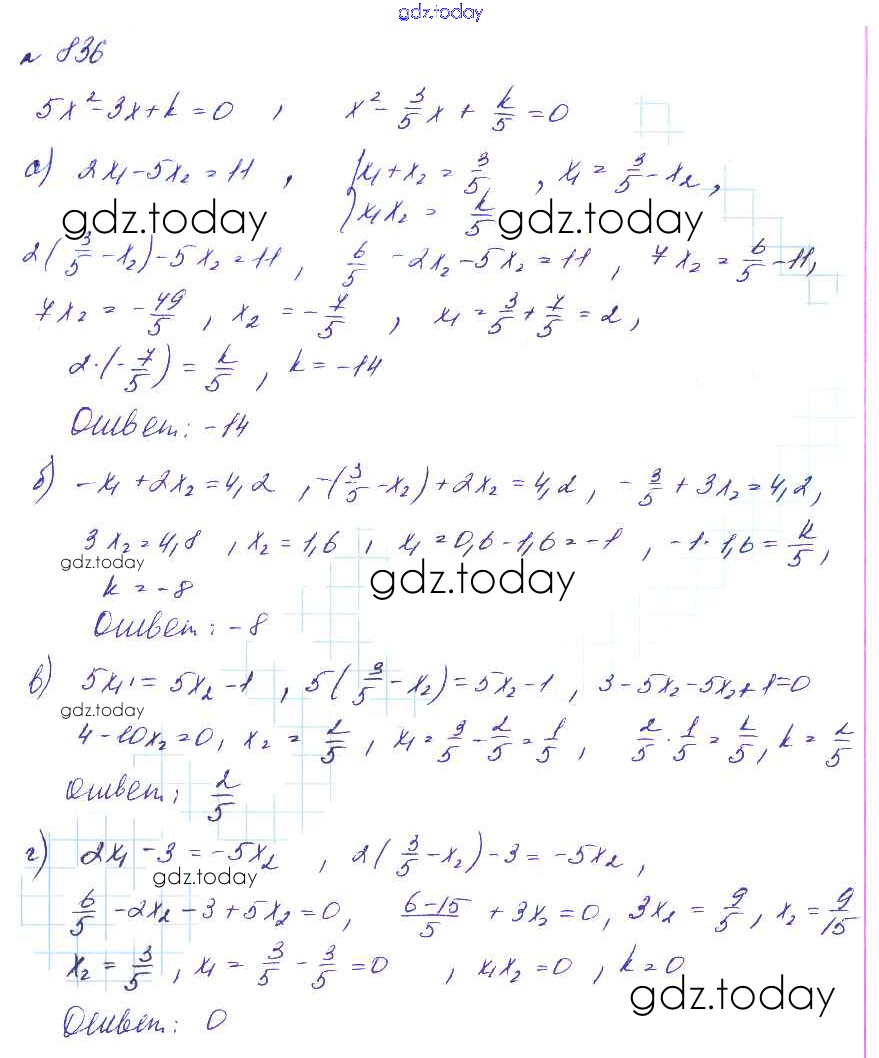 gdz.today
№ 836
5x² - 3x + k = 0 , x² - 3/5 x + k/5 = 0
а) 2x₁ - 5x₂ = 11 , { x₁ + x₂ = 3/5 , x₁ = 3/5 - x₂ ,
x₁x₂ = k/5
gdz.today gdz.today
2(3/5 - x₂) - 5x₂ = 11 , 6/5 - 2x₂ - 5x₂ = 11 , 7x₂ = 6/5 - 11,
7x₂ = -49/5 , x₂ = -7/5 , x₁ = 3/5 + 7/5 = 2 ,
2·(-7/5) = k/5 , k = -14
Ответ: -14
б) -x₁ + 2x₂ = 4,2 , -(3/5 - x₂) + 2x₂ = 4,2 , -3/5 + 3x₂ = 4,2 ,
3x₂ = 4,8 , x₂ = 1,6 , x₁ = 0,6 - 1,6 = -1 , -1·1,6 = k/5 ,
gdz.today gdz.today
k = -8
Ответ: -8
в) 5x₁ = 5x₂ - 1 , 5(3/5 - x₂) = 5x₂ - 1 , 3 - 5x₂ - 5x₂ + 1 = 0
gdz.today
4 - 10x₂ = 0 , x₂ = 2/5 , x₁ = 3/5 - 2/5 = 1/5 , 2/5 · 1/5 = k/5 , k = 2/5
Ответ: 2/5
г) 2x₁ - 3 = -5x₂ , 2(3/5 - x₂) - 3 = -5x₂ ,
gdz.today
6/5 - 2x₂ - 3 + 5x₂ = 0 , (6-15)/5 + 3x₂ = 0 , 3x₂ = 9/5 , x₂ = 9/15
x₂ = 3/5 , x₁ = 3/5 - 3/5 = 0 , x₁x₂ = 0 , k = 0
gdz.today
Ответ: 0